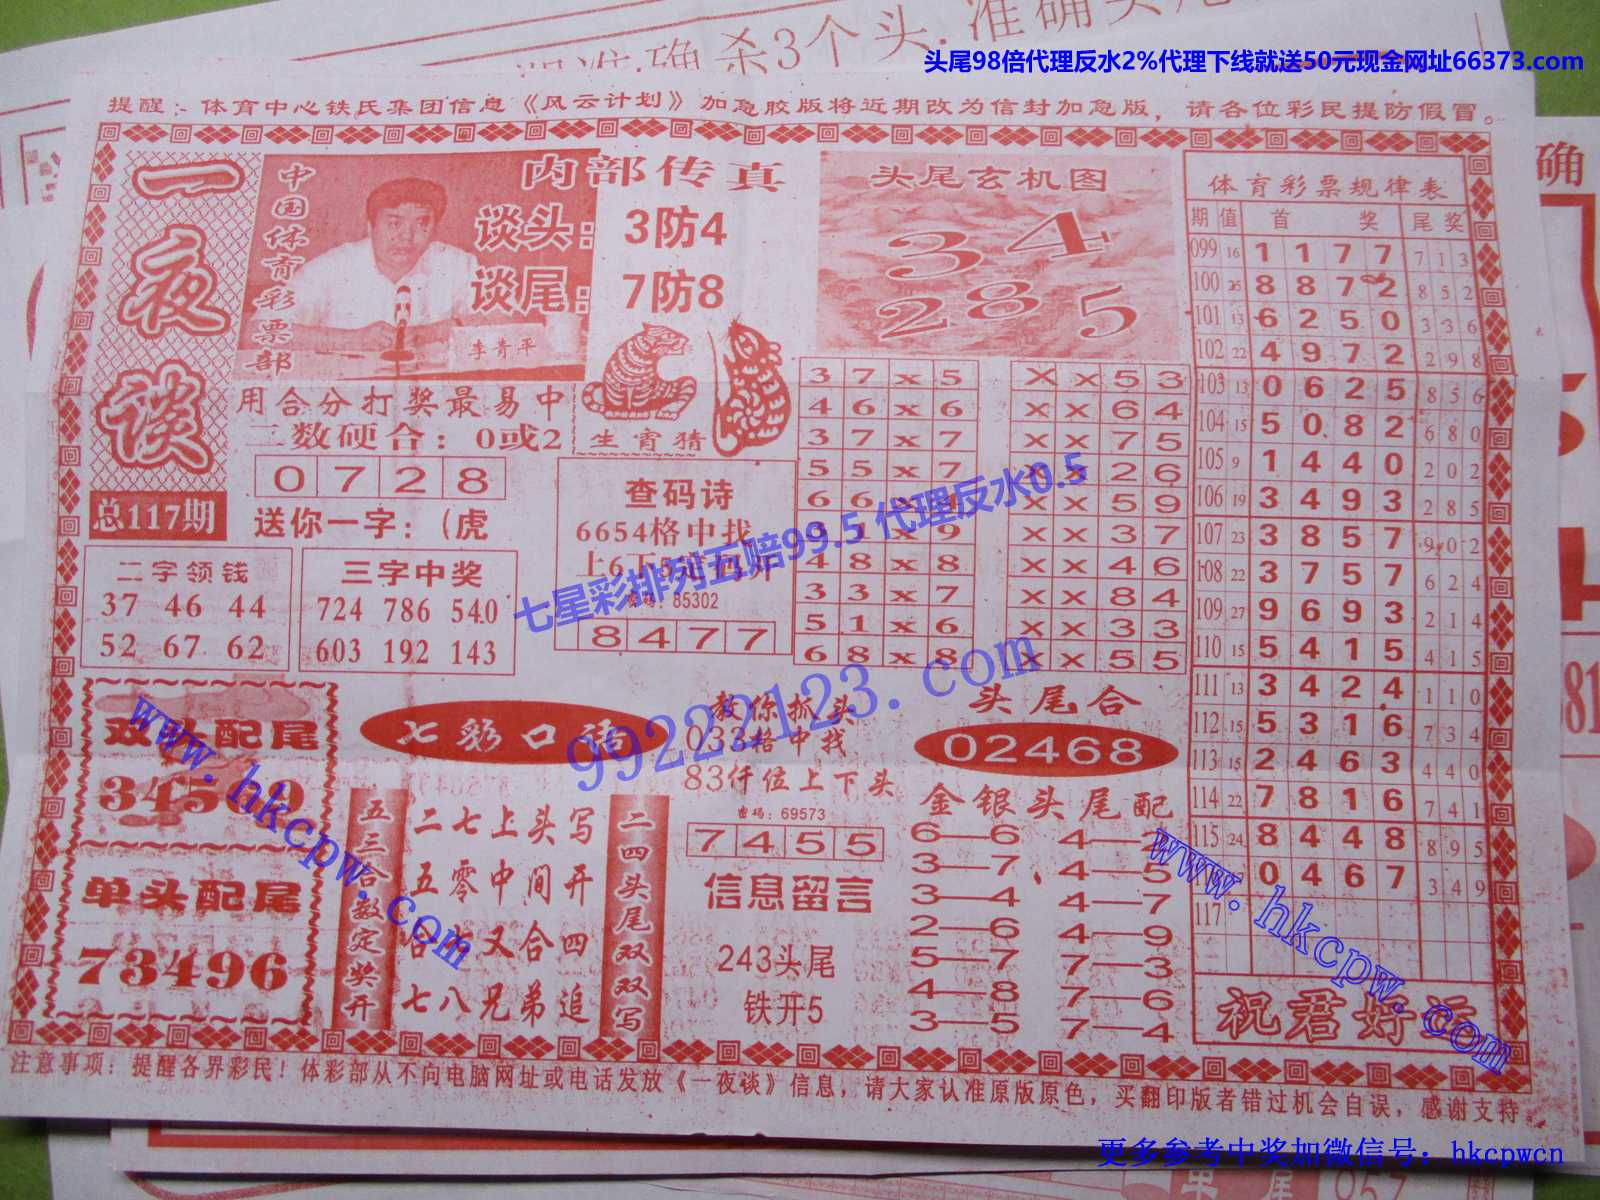 准确杀3个头.准确
头尾98倍代理反水2%代理下线就送50元现金网址66373.com
提醒：体育中心铁氏集团信息《风云计划》加急胶版将近期改为信封加急版，请各位彩民提防假冒。
一夜谈
总117期
中国体育彩票部
李青平
内部传真
谈头：3防4
谈尾：7防8
生肖猜
头尾玄机图
3 4
2 8 5
用合分打奖最易中
二数硬合：0或2
0 7 2 8
送你一字：(虎
二字领钱
37 46 44
52 67 62
三字中奖
724 786 540
603 192 143
查码诗
6654格中找
85302
8 4 7 7
3 7 x 5
4 6 x 6
3 7 x 7
5 5 x 7
4 8 x 8
3 3 x 7
5 1 x 6
6 8 x 8
X x 5 3
x x 6 4
x x 7 5
x x 2 6
x x 5 9
x x 3 7
x x 4 6
x x 8 4
x x 3 3
x x 5 5
七星彩排列五赔99.5 代理反水0.5
99222123.com
体育彩票规律表
期 值 首 奖 尾 奖
099 16 1 1 7 7 7 1 3
100 25 8 8 7 2 8 5 2
101 13 6 2 5 0 3 3 6
102 22 4 9 7 2 2 9 8
103 13 0 6 2 5 8 5 6
104 15 5 0 8 2 6 8 0
105 9 1 4 4 0 2 0 2
106 19 3 4 9 3 2 8 5
107 23 3 8 5 7 9 0 2
108 22 3 7 5 7 6 2 4
109 27 9 6 9 3 2 1 4
110 15 5 4 1 5 4 1 5
111 13 3 4 2 4 1 1 0
112 15 5 3 1 6 7 3 4
113 15 2 4 6 3 4 4 0
114 22 7 8 1 6 7 4 1
115 24 8 4 4 8 8 9 5
0 4 6 7 3 4 9
117
祝君好运
双头配尾
单头配尾
73496
www.hkcpw.com
七彩口语
五三合数定奖开
二七上头写
五零中间开
又合四
七八兄弟追
二四头尾双双写
教你抓头
033格中找
83仟位上下头
密码：69573
7 4 5 5
信息留言
243头尾
铁开5
头尾合
02468
金银头尾配
6—6 4—2
3—7 4—5
3—4 4—7
2—6 4—9
5—7 7—3
4—8 7—6
3—5 7—4
www.hkcpw.com
注意事项：提醒各界彩民！体彩部从不向电脑网址或电话发放《一夜谈》信息，请大家认准原版原色，买翻印版者错过机会自误，感谢支持。
更多参考中奖加微信号：hkcpwcn